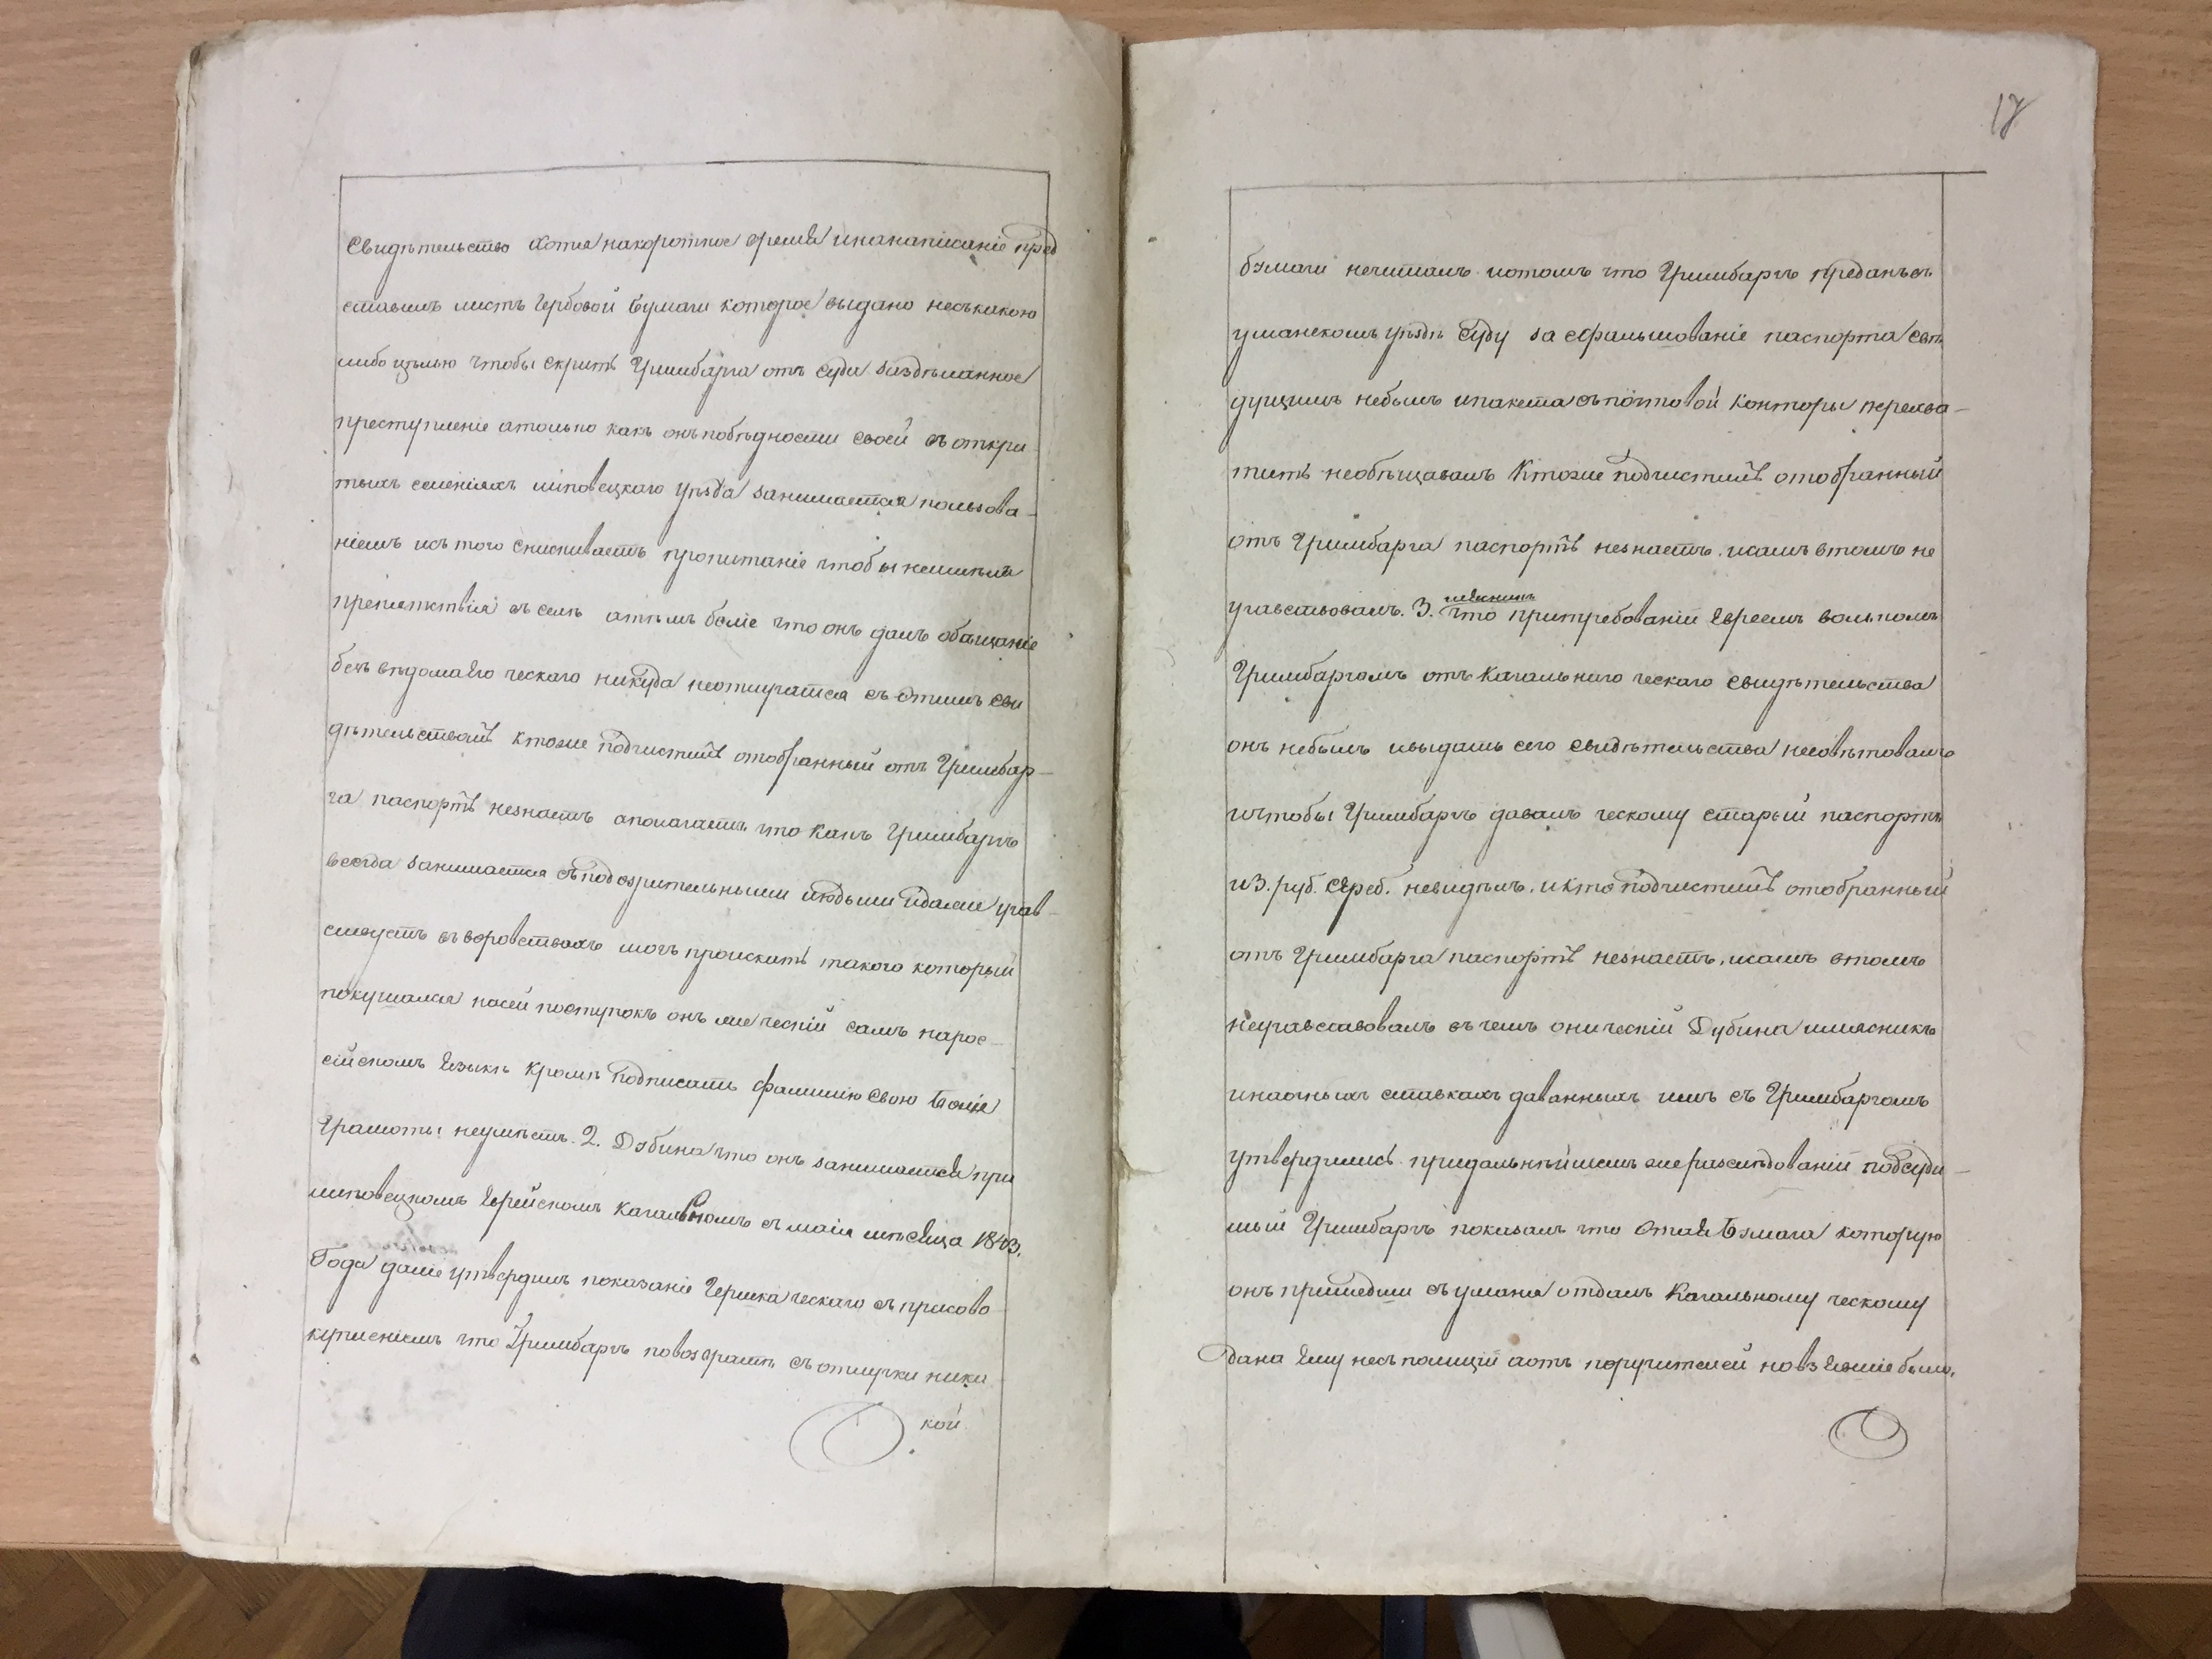 свидѣтельство хотя накороткое время инанаписаніе пред
ставилъ листъ гербовой бумаги которое выдано несъкакою
либо цѣлью чтобы скрить Гринбарга отъ суда заздѣланное
преступленіе атолько какъ онъ побѣдности своей въ откри
тыхъ селеніяхъ липовецкаго уѣзда занимается пользова-
ніемъ исъ того снискиваетъ пропитаніе чтобы неимѣлъ
препятствія въ семъ атѣмъ болie что онъ далъ обѣщаніе
безъ вѣдома Его ческаго никуда неотлучатся съ Этимъ сви
дѣтельствомъ ктоже подчистилъ отобранный отъ Гринбар-
га паспортъ незнаетъ аполагаетъ что какъ Гринбаргъ
всегда занимается съподозрительными людьми идаже учав-
ствуетъ въ воровствахъ могъ проискать такого который
покушался насей поступокъ онъ же ческій самъ нарос-
сійскомъ Языкѣ кромѣ подписать фамилію свою болie
Грамоты неумѣетъ. 2. Дубина что онъ занимается при
липовецкомъ Еврейскомъ Кагальномъ съ маія мѣсяца 1843.
Года далie утвердилъ показаніе Гершка ческаго съ присово
купленіемъ что Гринбаргъ повозвратѣ съ отлучки ника
кой
17
бумаги нечиталъ иотомъ что Гринбаргъ преданъ въ
уманскомъ уѣздѣ суду за сфальшованіе паспорта свѣ
дущимъ небылъ ипакета съ почтовой Конторы перехва-
тить необѣщавалъ Ктоже подчистилъ отобранный
отъ Гринбарга паспортъ незнаетъ. исамъ втомъ не
учавствовалъ. 3. что притребованіи Евреемъ вольномъ
Гринбаргомъ отъ Кагальнаго ческаго свидѣтельства
онъ небылъ ивыдать сего свидѣтельства несовѣтовалъ
ичтобы Гринбаргъ давалъ ческому старый паспортъ
и 3. руб. Сереб. невидѣлъ. икто подчистилъ отобранный
отъ Гринбарга паспортъ незнаетъ, исамъ втомъ
неучавствовалъ въ чемъ они ческій Дубина имясникъ
инаочныхъ ставкахъ даванныхъ имъ съ Гринбаргомъ
утвердились. придальнѣйшемъ же разслѣдованіи подсуди-
мый Гринбаргъ показалъ что Этая бумага которую
онъ пришедши съ уманя отдалъ Кагальному ческому
Дана Ему несъ полиціи аотъ поручителей новзявшіе было,